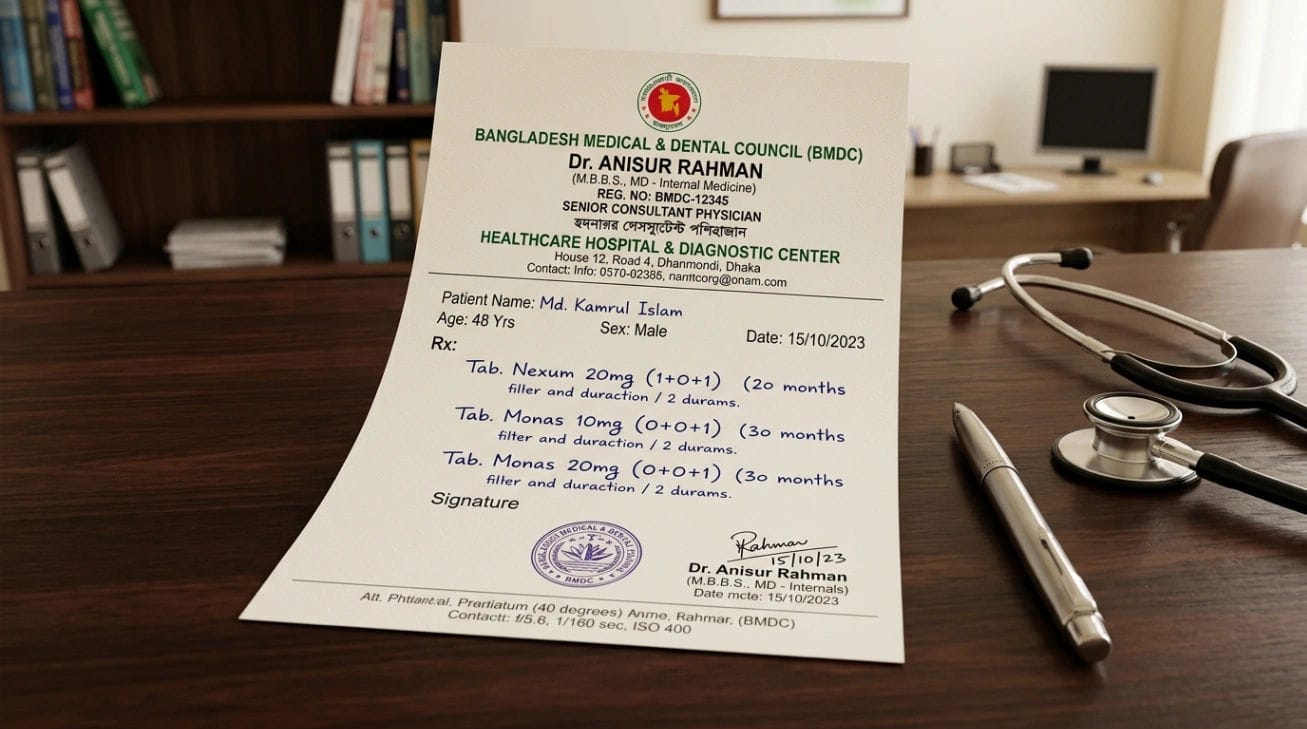 BANGLADESH MEDICAL & DENTAL COUNCIL (BMDC)
Dr. ANISUR RAHMAN
(M.B.B.S., MD - Internal Medicine)
REG. NO: BMDC-12345
SENIOR CONSULTANT PHYSICIAN
HEALTHCARE HOSPITAL & DIAGNOSTIC CENTER
House 12, Road 4, Dhanmondi, Dhaka
Contact: Info: 0570-02385, nanttcorg@onam.com
Patient Name: Md. Kamrul Islam
Age: 48 Yrs Sex: Male Date: 15/10/2023
Rx:
Tab. Nexum 20mg (1+0+1) (20 months
filler and duraction / 2 durams.
Tab. Monas 10mg (0+0+1) (30 months
filter and duraction / 2 durams.
Tab. Monas 20mg (0+0+1) (30 months
filler and duraction / 2 durams.
Signature
BMDC
Rahman
15/10/23
Dr. Anisur Rahman
(M.B.B.S., MD - Internals)
Date mcte: 15/10/2023
Att. Prertiatum (40 degrees) Anme, Rahmar. (BMDC)
Contactt: f/5.6, 1/160 sec, ISO 400